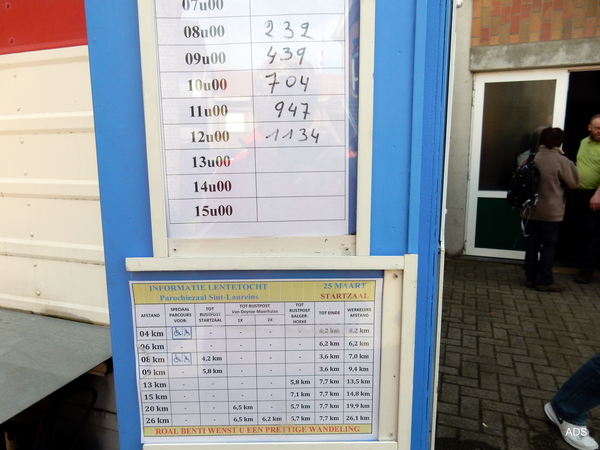 07u00
08u00 232
09u00 439
10u00 704
11u00 947
12u00 1134
13u00
14u00
15u00
INFORMATIE LENTETOCHT 25 MAART
Parochiezaal Sint-Laureins STARTZAAL
AFSTAND SPECIAAL PARCOURS VOOR: TOT RUSTPOST STARTZAAL TOT RUSTPOST Van Deynse Moerhuize 1X 2X TOT RUSTPOST BALGERHOEKE TOT EINDE WERKELIJKE AFSTAND
04 km - - - - 4,2 km 4,2 km
06 km - - - - - 6,2 km 6,2 km
08 km 4,2 km - - - 3,6 km 7,0 km
09 km - 5,8 km - - - 3,6 km 9,4 km
13 km - - - - 5,8 km 7,7 km 13,5 km
15 km - - - - 7,1 km 7,7 km 14,8 km
20 km - - 6,5 km - 5,7 km 7,7 km 19,9 km
26 km - - 6,5 km 6,2 km 5,7 km 7,7 km 26,1 km
ROAL BENTI WENST U EEN PRETTIGE WANDELING
ADS